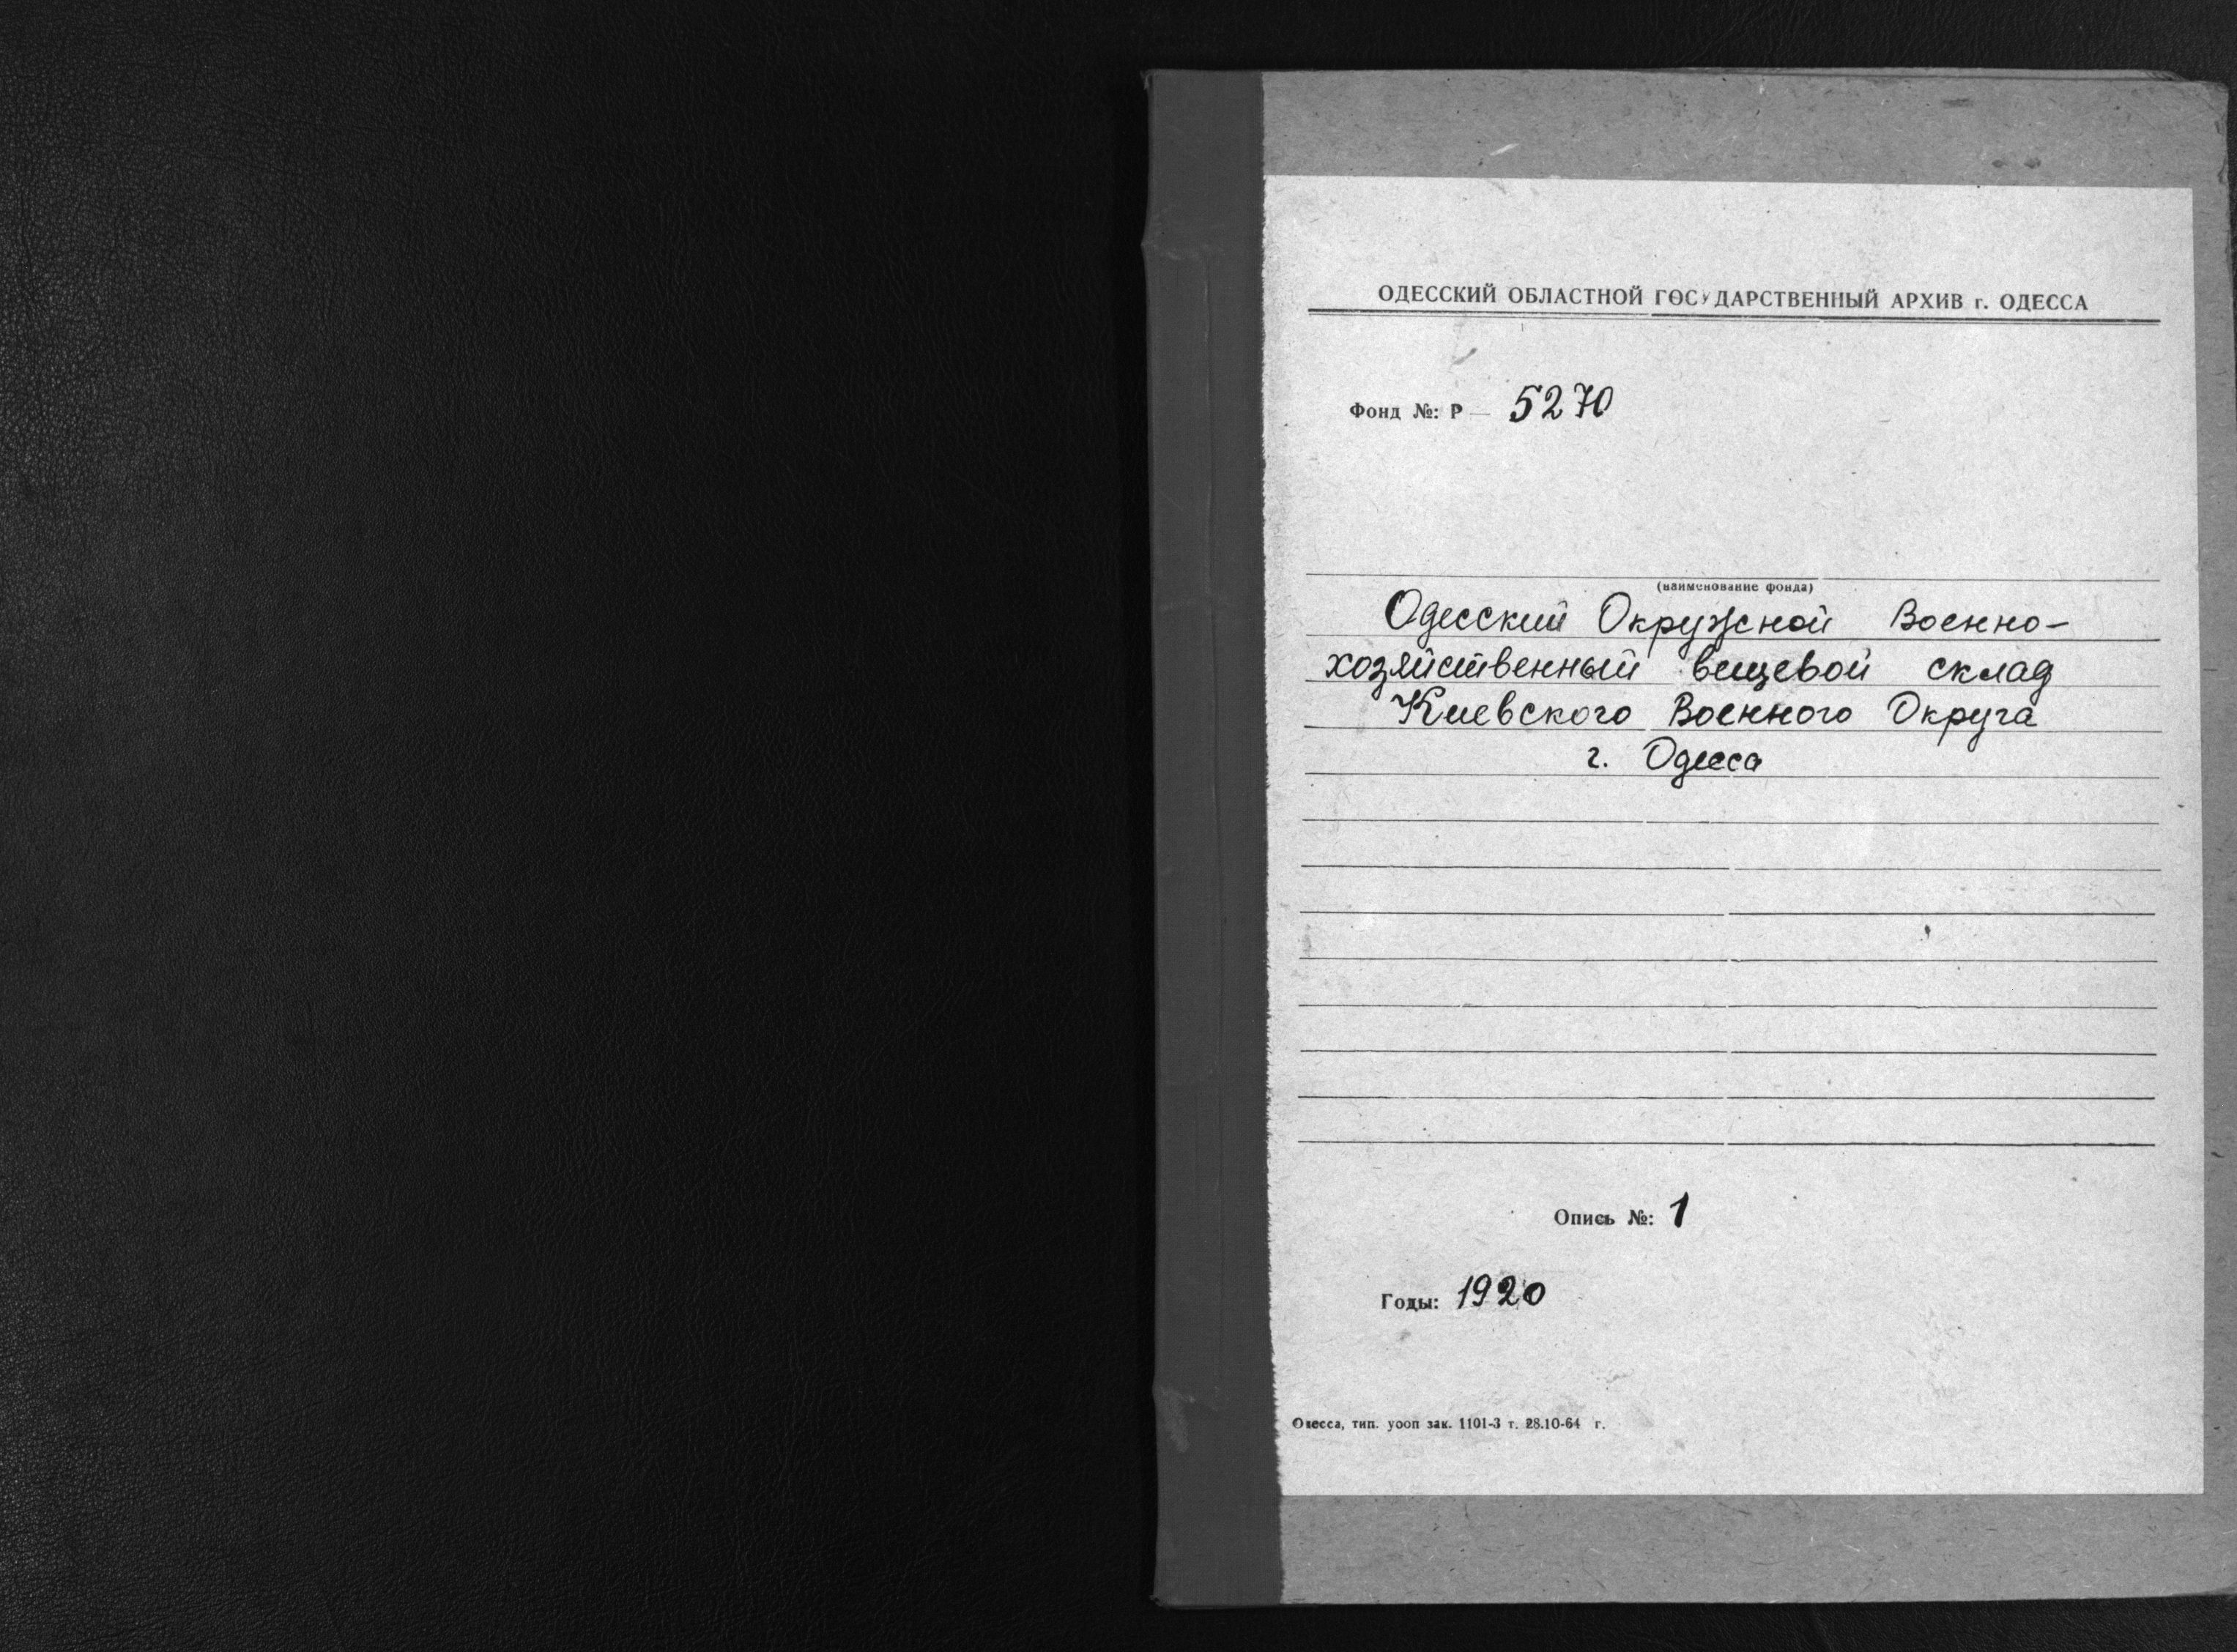 ОДЕССКИЙ ОБЛАСТНОЙ ГОСУДАРСТВЕННЫЙ АРХИВ г. ОДЕССА
Фонд №: Р — 5270
(наименование фонда)
Одесский Окружной Военно-
хозяйственный вещевой склад
Киевского Военного Округа
г. Одесса
Опись №: 1
Годы: 1920
Одесса, тип. уооп зак. 1101-3 т. 28.10-64 г.